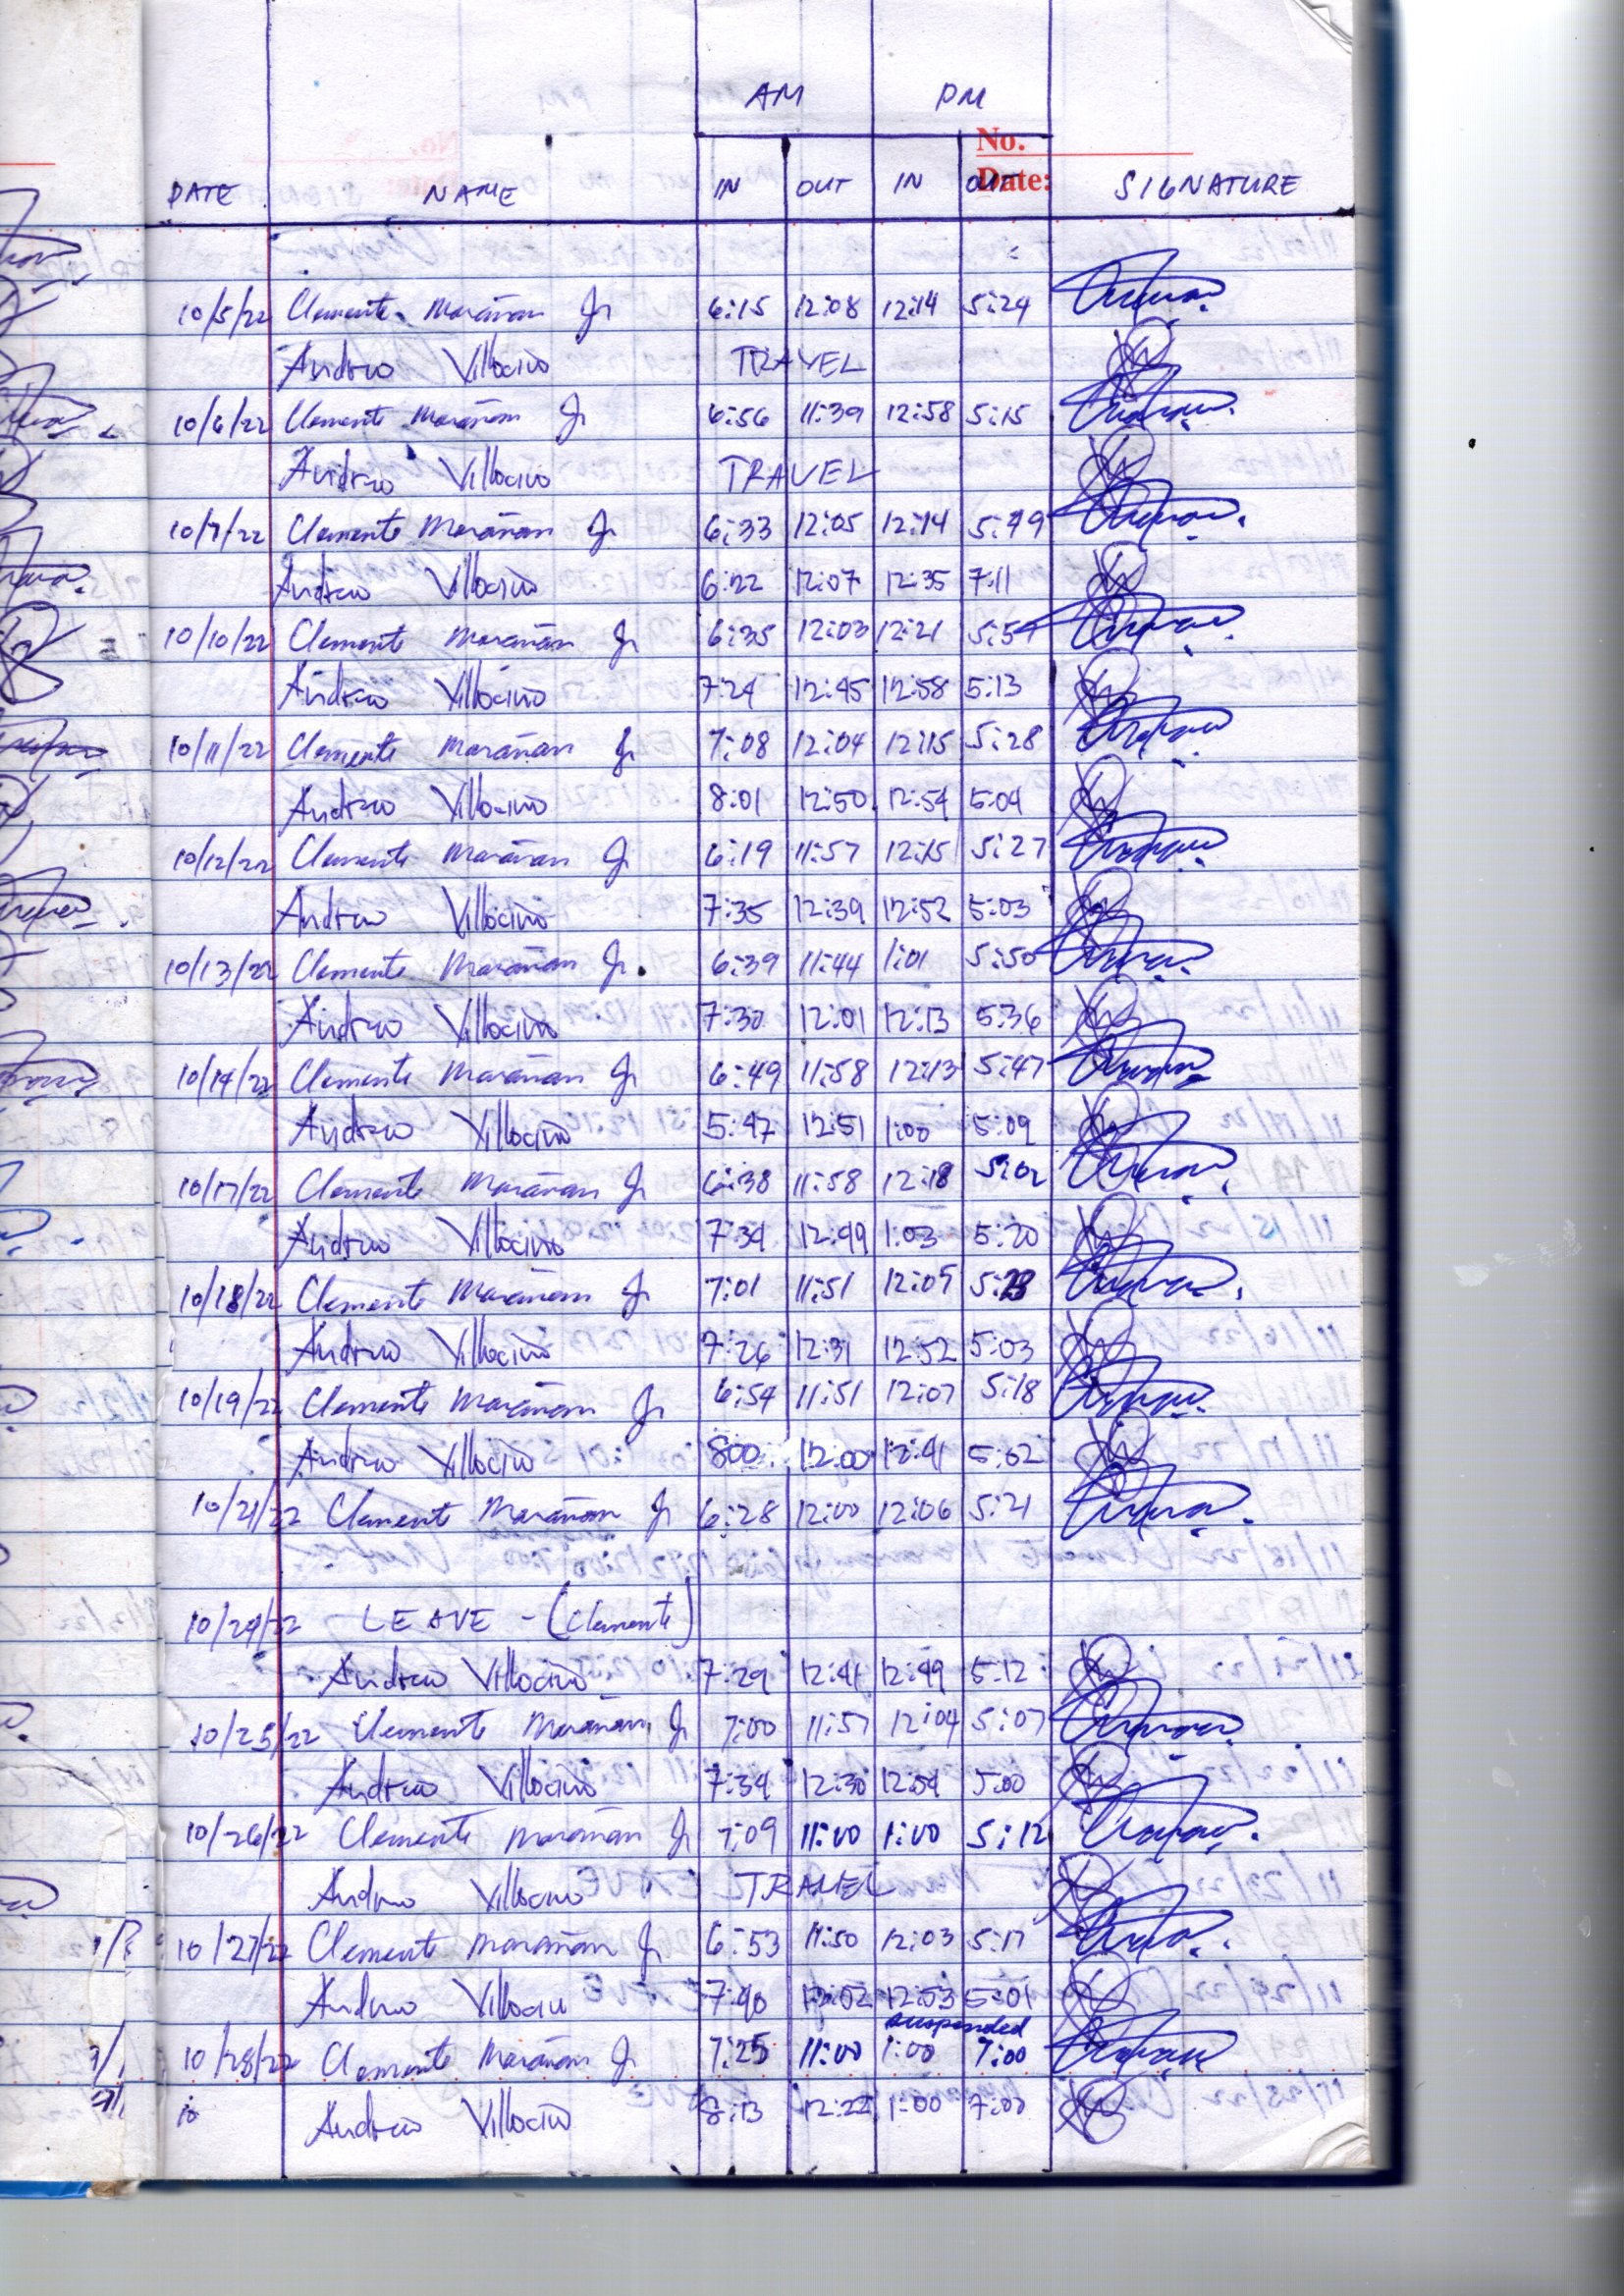 AM PM
No.
Date:
DATE NAME IN OUT IN OUT SIGNATURE
10/5/22 Clemente Marañan Jr 6:15 12:08 12:14 5:24
Andrew Villocino TRAVEL
10/6/22 Clemente Marañan Jr 6:56 11:39 12:58 5:15
Andrew Villocino TRAVEL
10/7/22 Clemente Marañan Jr 6:33 12:05 12:14 5:49
Andrew Villocino 6:22 12:07 12:35 7:11
10/10/22 Clemente Marañan Jr 6:35 12:03 12:21
Andrew Villocino 7:24 12:45 12:58 5:13
10/11/22 Clemente Marañan Jr 7:08 12:04 12:15 5:28
Andrew Villocino 8:01 12:50 12:54 5:04
10/12/22 Clemente Marañan Jr 6:19 11:57 12:15 5:27
Andrew Villocino 7:35 12:39 12:52 5:03
10/13/22 Clemente Marañan Jr. 6:39 11:44 1:01 5:50
Andrew Villocino 7:30 12:01 12:13 5:36
10/14/22 Clemente Marañan Jr 6:49 11:58 12:13 5:47
Andrew Villocino 5:47 12:51 1:00 5:09
10/17/22 Clemente Marañan Jr 6:38 11:58 12:18 5:02
Andrew Villocino 7:34 12:49 1:03 5:20
10/18/22 Clemente Marañan Jr 7:01 11:51 12:05
Andrew Villocino 7:26 12:31 12:52 5:03
10/19/22 Clemente Marañan Jr 6:54 11:51 12:07 5:18
Andrew Villocino 800 12:00 12:41 5:02
10/21/22 Clemente Marañan Jr 6:28 12:00 12:06 5:21
10/24/22 LEAVE - (Clemente)
Andrew Villocino 7:29 12:41 12:49 5:12
10/25/22 Clemente Marañan Jr 7:00 11:57 12:04 5:07
Andrew Villocino 7:34 12:30 12:54 5:00
10/26/22 Clemente Marañan Jr 7:09 11:00 1:00 5:12
Andrew Villocino TRAVEL
10/27/22 Clemente Marañan Jr 6:53 11:50 12:03 5:17
Andrew Villocin 7:40 12:02 12:53 5:01
suspended
10/28/22 Clemente Marañan Jr 7:25 11:00 1:00 7:00
10 Andrew Villocino 8:13 12:22 1:00 7:00